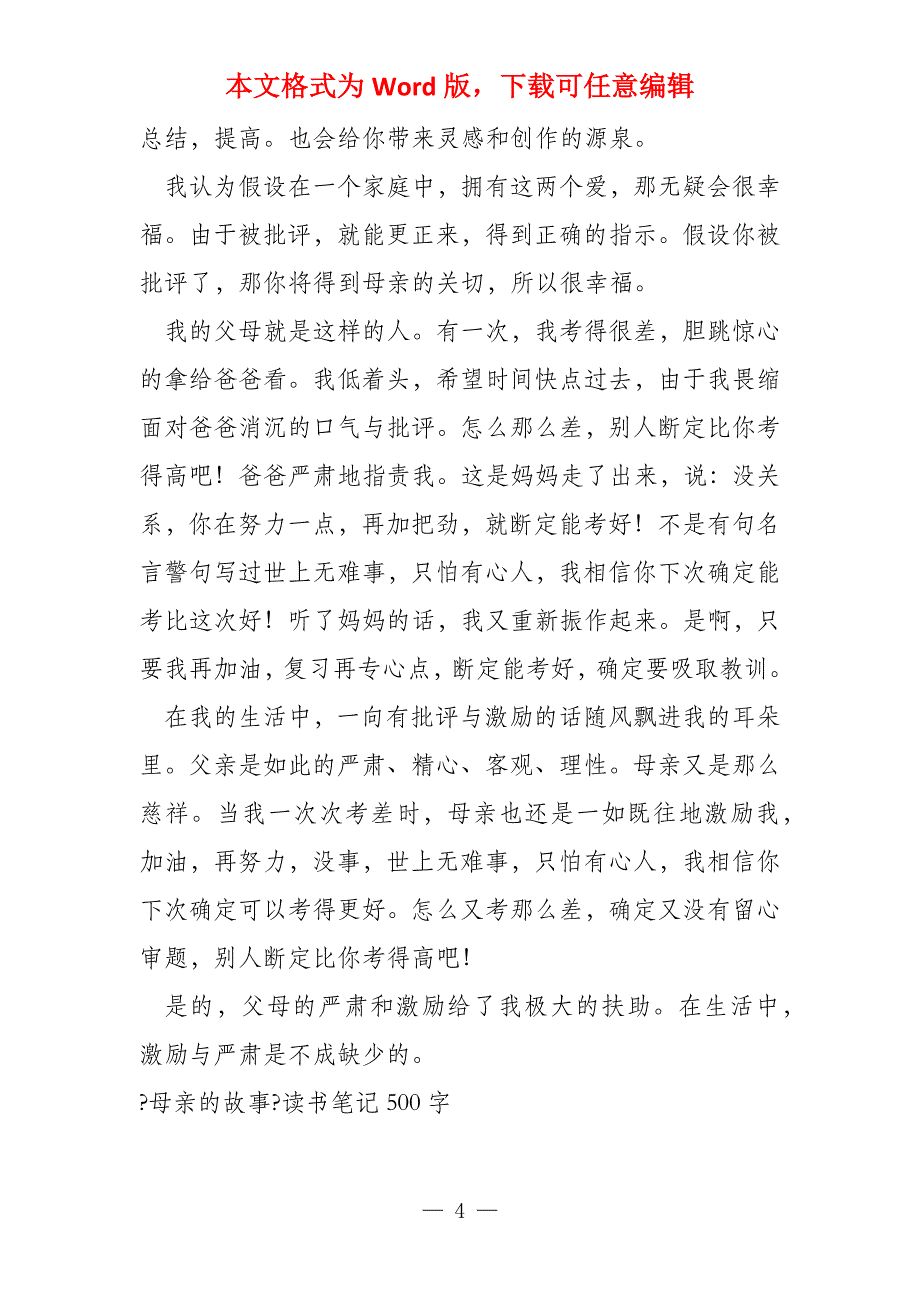 本文格式为 Word 版，下载可任意编辑
总结，提高。也会给你带来灵感和创作的源泉。
我认为假设在一个家庭中，拥有这两个爱，那无疑会很幸
福。由于被批评，就能更正来，得到正确的指示。假设你被
批评了，那你将得到母亲的关切，所以很幸福。
我的父母就是这样的人。有一次，我考得很差，胆跳惊心
的拿给爸爸看。我低着头，希望时间快点过去，由于我畏缩
面对爸爸消沉的口气与批评。怎么那么差，别人断定比你考
得高吧！爸爸严肃地指责我。这是妈妈走了出来，说：没关
系，你在努力一点，再加把劲，就断定能考好！不是有句名
言警句写过世上无难事，只怕有心人，我相信你下次确定能
考比这次好！听了妈妈的话，我又重新振作起来。是啊，只
要我再加油，复习再专心点，断定能考好，确定要吸取教训。
在我的生活中，一向有批评与激励的话随风飘进我的耳朵
里。父亲是如此的严肃、精心、客观、理性。母亲又是那么
慈祥。当我一次次考差时，母亲也还是一如既往地激励我，
加油，再努力，没事，世上无难事，只怕有心人，我相信你
下次确定可以考得更好。怎么又考那么差，确定又没有留心
审题，别人断定比你考得高吧！
是的，父母的严肃和激励给了我极大的扶助。在生活中，
激励与严肃是不成缺少的。
?母亲的故事?读书笔记 500 字
— 4 —